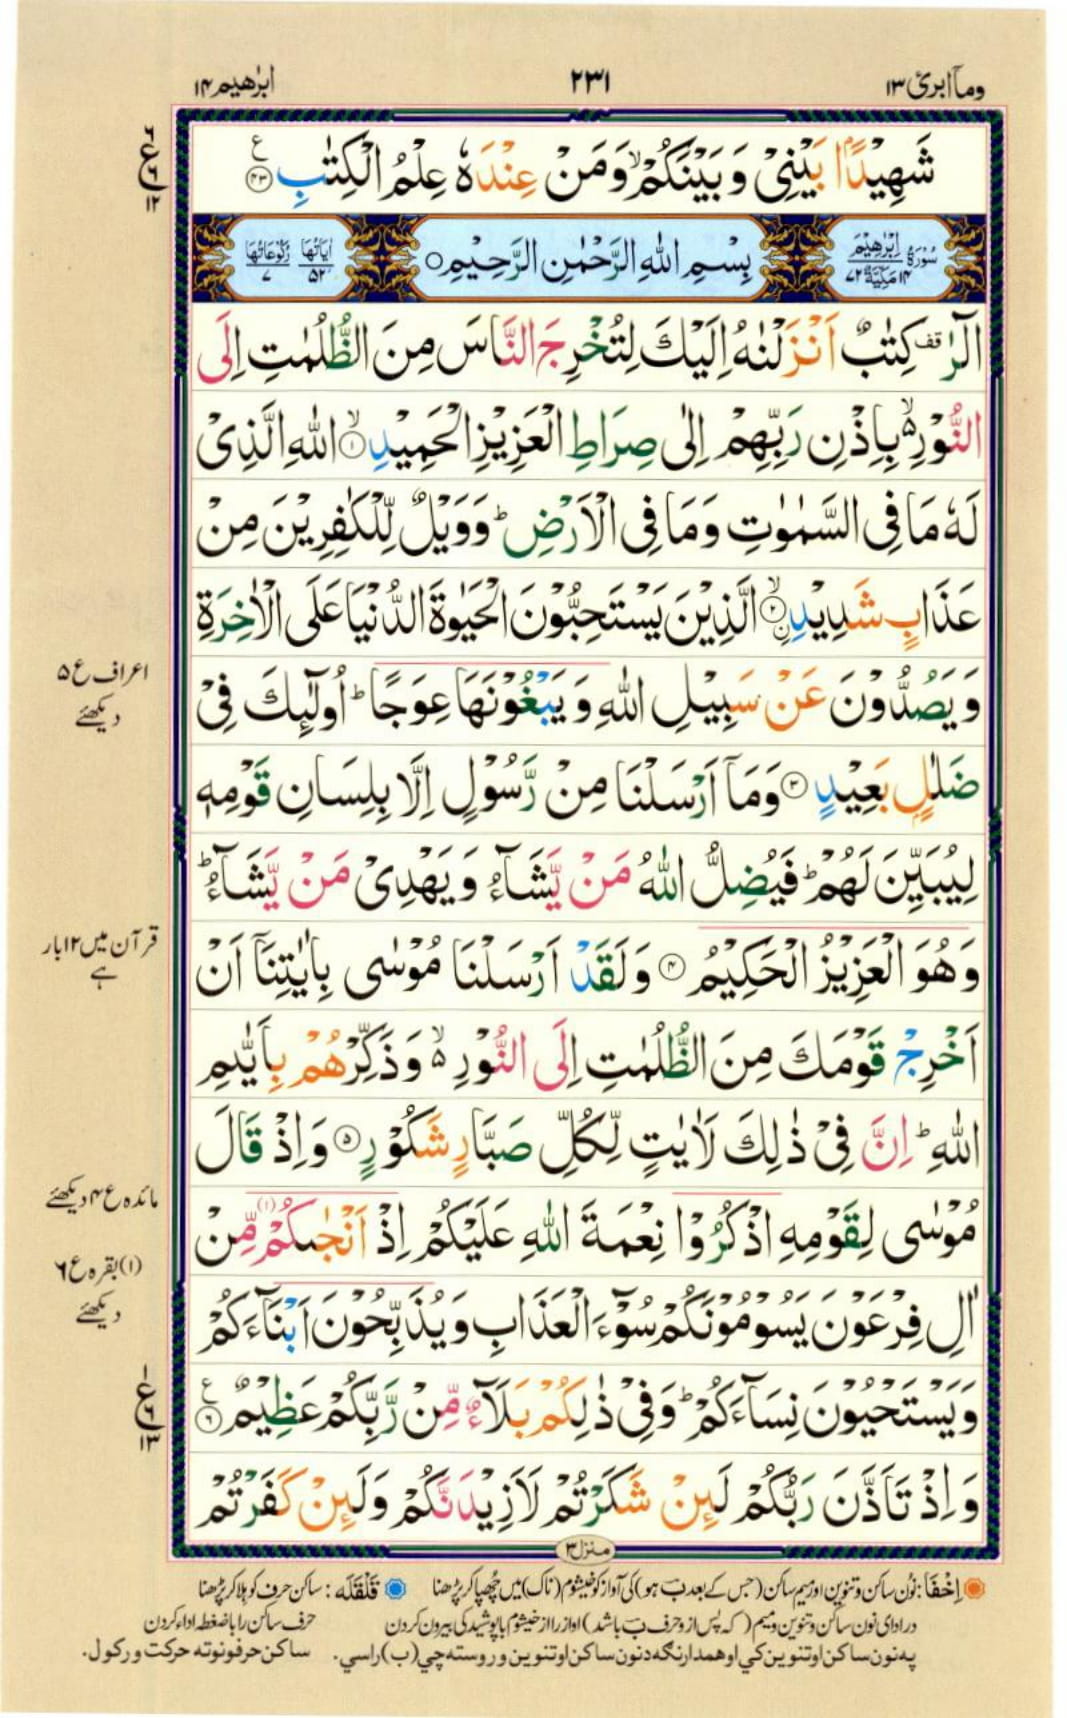 وماۤ ابرئ ١٣
٢٣١
ابرٰهيم ١۴
شَهِيْدًۢا بَيْنِيْ وَبَيْنَكُمْ ۙ وَمَنْ عِنْدَهٗ عِلْمُ الْكِتٰبِ ۝۴۳ ع
ع ٦ ١٢
سُوْرَةُ اِبْرٰهِيْمَ مَكِّيَّةٌ ١۴ ٧٢
بِسْمِ اللّٰهِ الرَّحْمٰنِ الرَّحِيْمِ ۝
اٰيَاتُهَا ٥٢ رُكُوْعَاتُهَا ٧
الٓرٰ ۟قف كِتٰبٌ اَنْزَلْنٰهُ اِلَيْكَ لِتُخْرِجَ النَّاسَ مِنَ الظُّلُمٰتِ اِلَى
النُّوْرِ ۙ۬ بِاِذْنِ رَبِّهِمْ اِلٰى صِرَاطِ الْعَزِيْزِ الْحَمِيْدِ ۙ۝۱ اللّٰهِ الَّذِيْ
لَهٗ مَا فِي السَّمٰوٰتِ وَمَا فِي الْاَرْضِ ؕ وَوَيْلٌ لِّلْكٰفِرِيْنَ مِنْ
عَذَابٍ شَدِيْدِ ۙ۝۲ ۨالَّذِيْنَ يَسْتَحِبُّوْنَ الْحَيٰوةَ الدُّنْيَا عَلَى الْاٰخِرَةِ
وَيَصُدُّوْنَ عَنْ سَبِيْلِ اللّٰهِ وَيَبْغُوْنَهَا عِوَجًا ؕ اُولٰٓئِكَ فِيْ
اعراف ع ۵
دیکھئے
ضَلٰلٍۭ بَعِيْدٍ ۝۳ وَمَاۤ اَرْسَلْنَا مِنْ رَّسُوْلٍ اِلَّا بِلِسَانِ قَوْمِهٖ
لِيُبَيِّنَ لَهُمْ ؕ فَيُضِلُّ اللّٰهُ مَنْ يَّشَآءُ وَيَهْدِيْ مَنْ يَّشَآءُ ؕ
وَهُوَ الْعَزِيْزُ الْحَكِيْمُ ۝۴ وَلَقَدْ اَرْسَلْنَا مُوْسٰى بِاٰيٰتِنَاۤ اَنْ
قرآن میں ١٢ بار
ہے
اَخْرِجْ قَوْمَكَ مِنَ الظُّلُمٰتِ اِلَى النُّوْرِ ۙ۬ وَذَكِّرْهُمْ بِاَيّٰىمِ
اللّٰهِ ؕ اِنَّ فِيْ ذٰلِكَ لَاٰيٰتٍ لِّكُلِّ صَبَّارٍ شَكُوْرٍ ۝۵ وَاِذْ قَالَ
مُوْسٰى لِقَوْمِهِ اذْكُرُوْا نِعْمَةَ اللّٰهِ عَلَيْكُمْ اِذْ اَنْجٰىكُمْ (١) مِّنْ
مائدہ ع ۴ دیکھئے
(١) بقرہ ع ٦
دیکھئے
اٰلِ فِرْعَوْنَ يَسُوْمُوْنَكُمْ سُوْٓءَ الْعَذَابِ وَيُذَبِّحُوْنَ اَبْنَآءَكُمْ
وَيَسْتَحْيُوْنَ نِسَآءَكُمْ ؕ وَفِيْ ذٰلِكُمْ بَلَآءٌ مِّنْ رَّبِّكُمْ عَظِيْمٌ ۝۶ ع
ع ٦ ١٣
وَاِذْ تَاَذَّنَ رَبُّكُمْ لَئِنْ شَكَرْتُمْ لَاَزِيْدَنَّكُمْ وَلَئِنْ كَفَرْتُمْ
منزل ٣
اِخْفَا: نُون ساکن و تنوین اور میم ساکن (جس کے بعد ب ہو) کی آواز کو خیشوم (ناک) میں چُھپا کر پڑھنا قَلْقَلَه: ساکن حرف کو ہلا کر پڑھنا
در ادای نون ساکن و تنوین و میم (که پس از و حرف ب باشد) آواز را از خیشوم با پوشیدگی بیرون کردن حرف ساکن را با ضغط اداء کردن
په نون ساکن او تنوین کي او همدارنګه د نون ساکن او تنوین و روسته چي (ب) راسي. ساکن حرفونو ته حرکت ورکول.